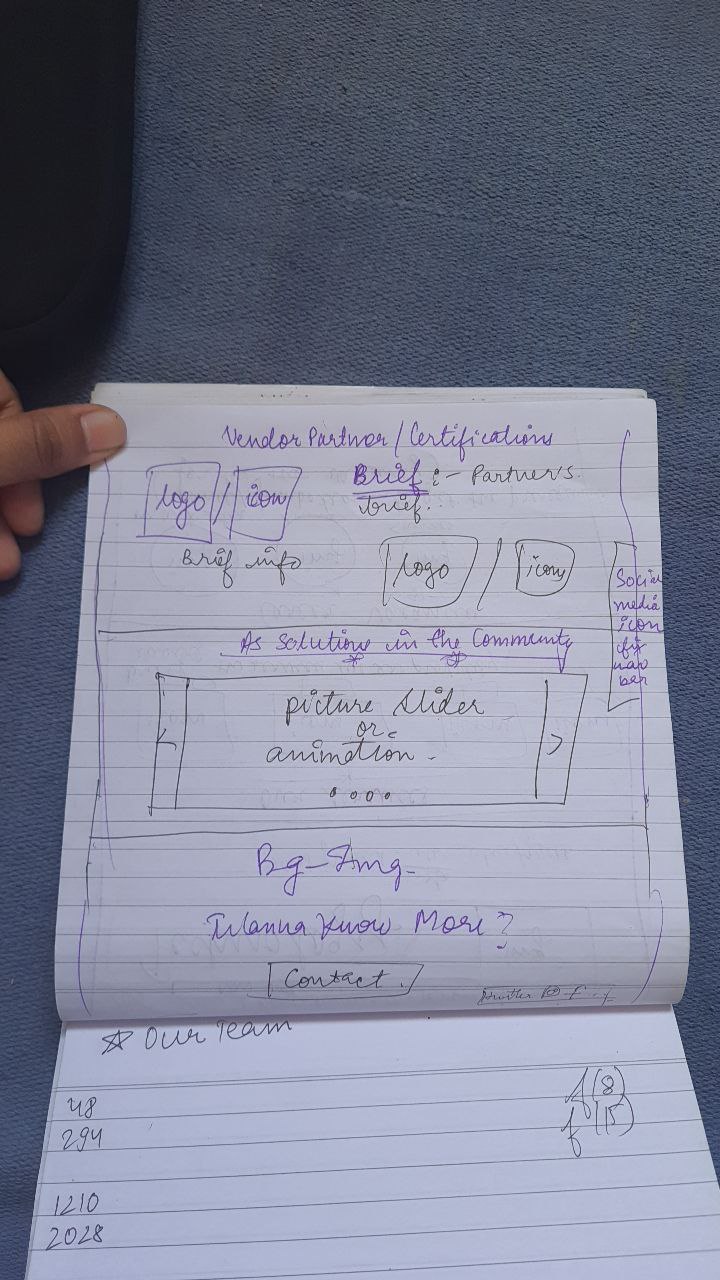 Vendor Partner / Certifications
logo / icon
Brief :- Partner's
brief.
Brief info
logo / icon
Social
media
icon
fix
nav
bar
As Solutions in the Community
picture slider
or
animation.
>
Bg-Img-
Wanna Know More?
Contact.
Our Team
48
f(8)
294
f(15)
1210
2028